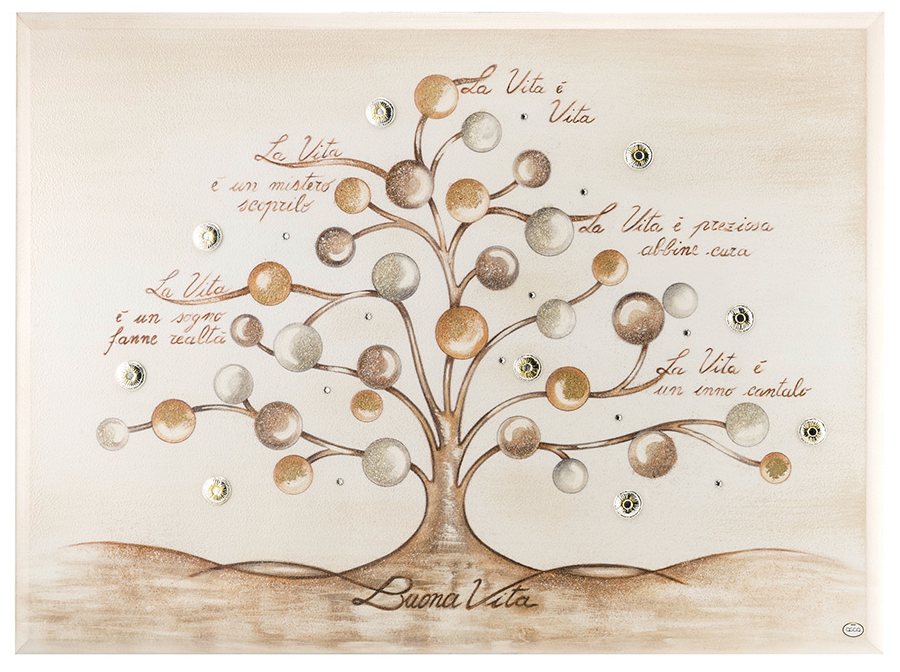 La Vita é
Vita
La Vita
é un mistero
scoprilo
La Vita é preziosa
abbine cura
La Vita
é un sogno
fanne realtà
La Vita é
un inno cantalo
Buona Vita
acca